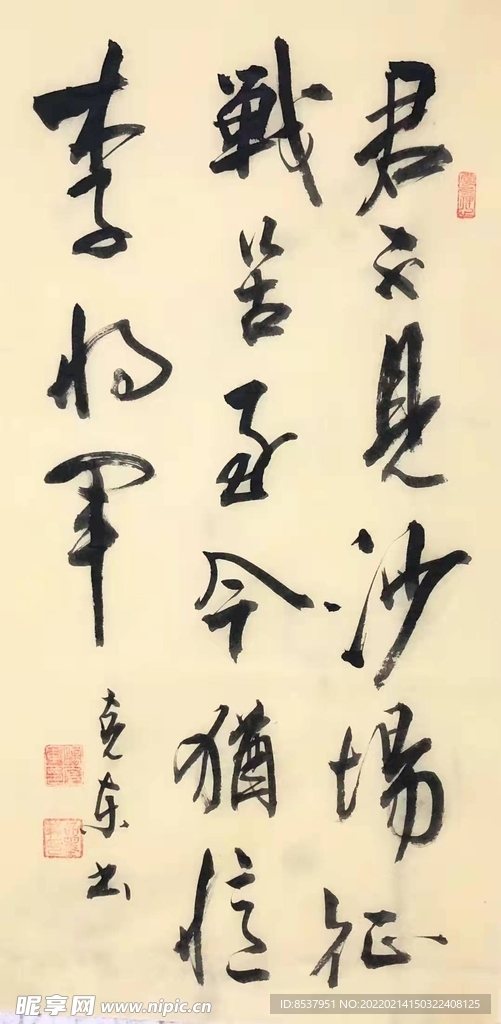 君不见沙場征
戰苦至今猶憶
李将军
克东书
昵享网 www.nipic.cn
ID:8537951 NO:20220214150322408125